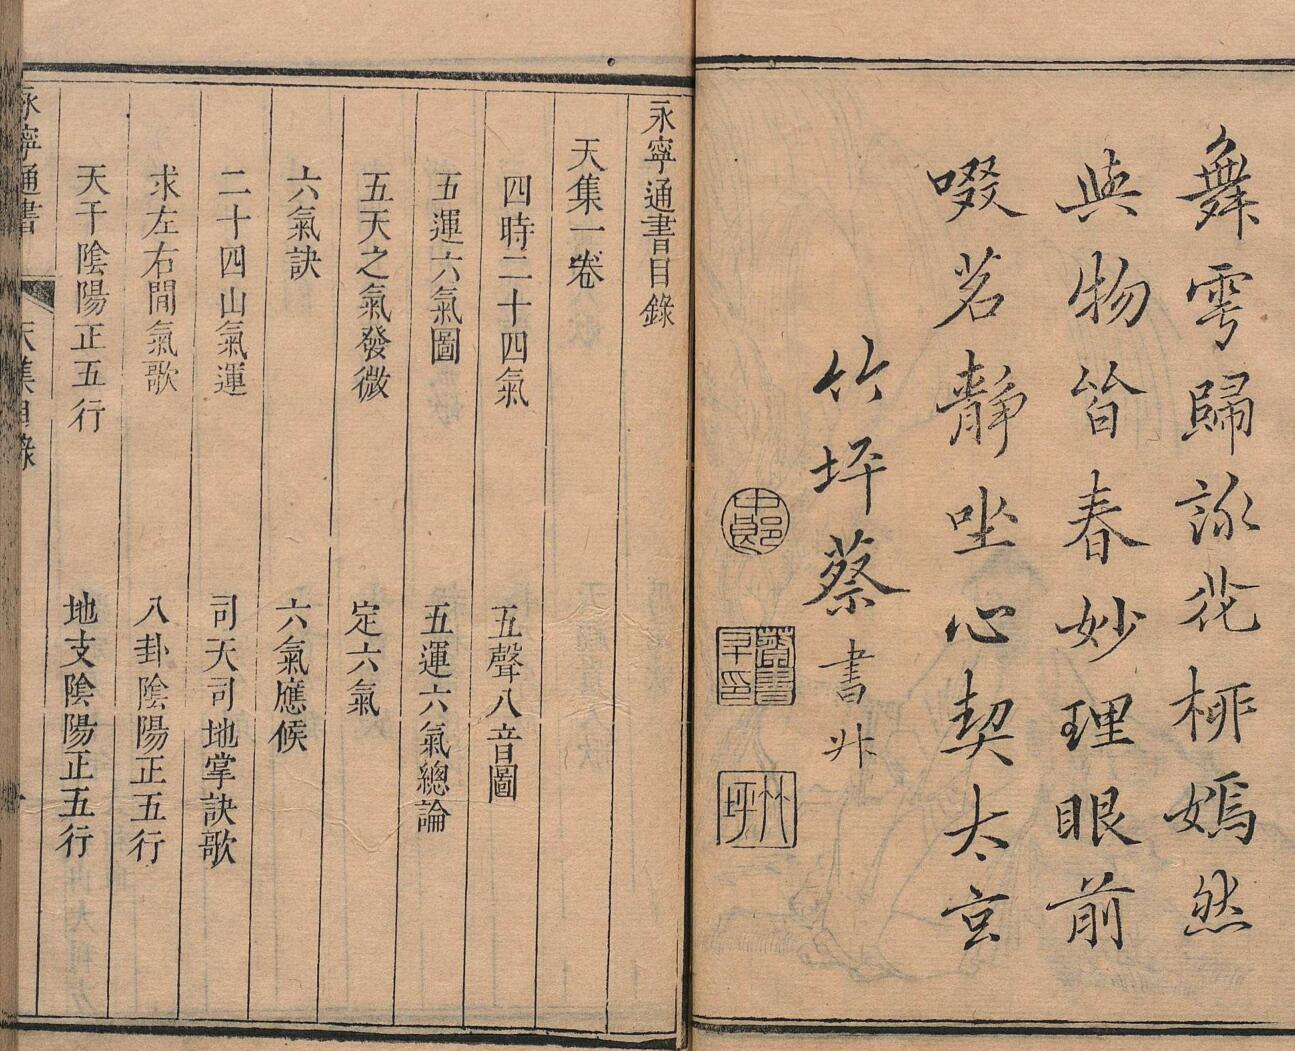 舞雩歸詠花柳嫣然
與物皆春妙理眼前
啜茗靜坐心契太玄
竹坪蔡書升
中郎
蔡書升印
竹坪
永寧通書目錄
天集一卷
四時二十四氣 五聲八音圖
五運六氣圖 五運六氣總論
五天之氣發微 定六氣
六氣訣 六氣應候
二十四山氣運 司天司地掌訣歌
求左右間氣歌 八卦陰陽正五行
天干陰陽正五行 地支陰陽正五行
永寧通書 天集目錄 一